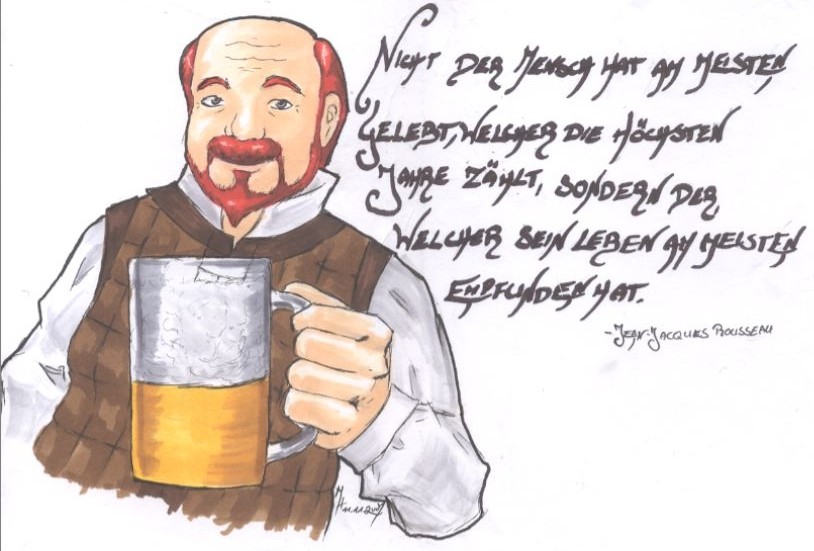 Nicht der Mensch hat am meisten
gelebt, welcher die höchsten
Jahre zählt, sondern der
welcher sein Leben am meisten
empfunden hat.
-Jean-Jacques Rousseau